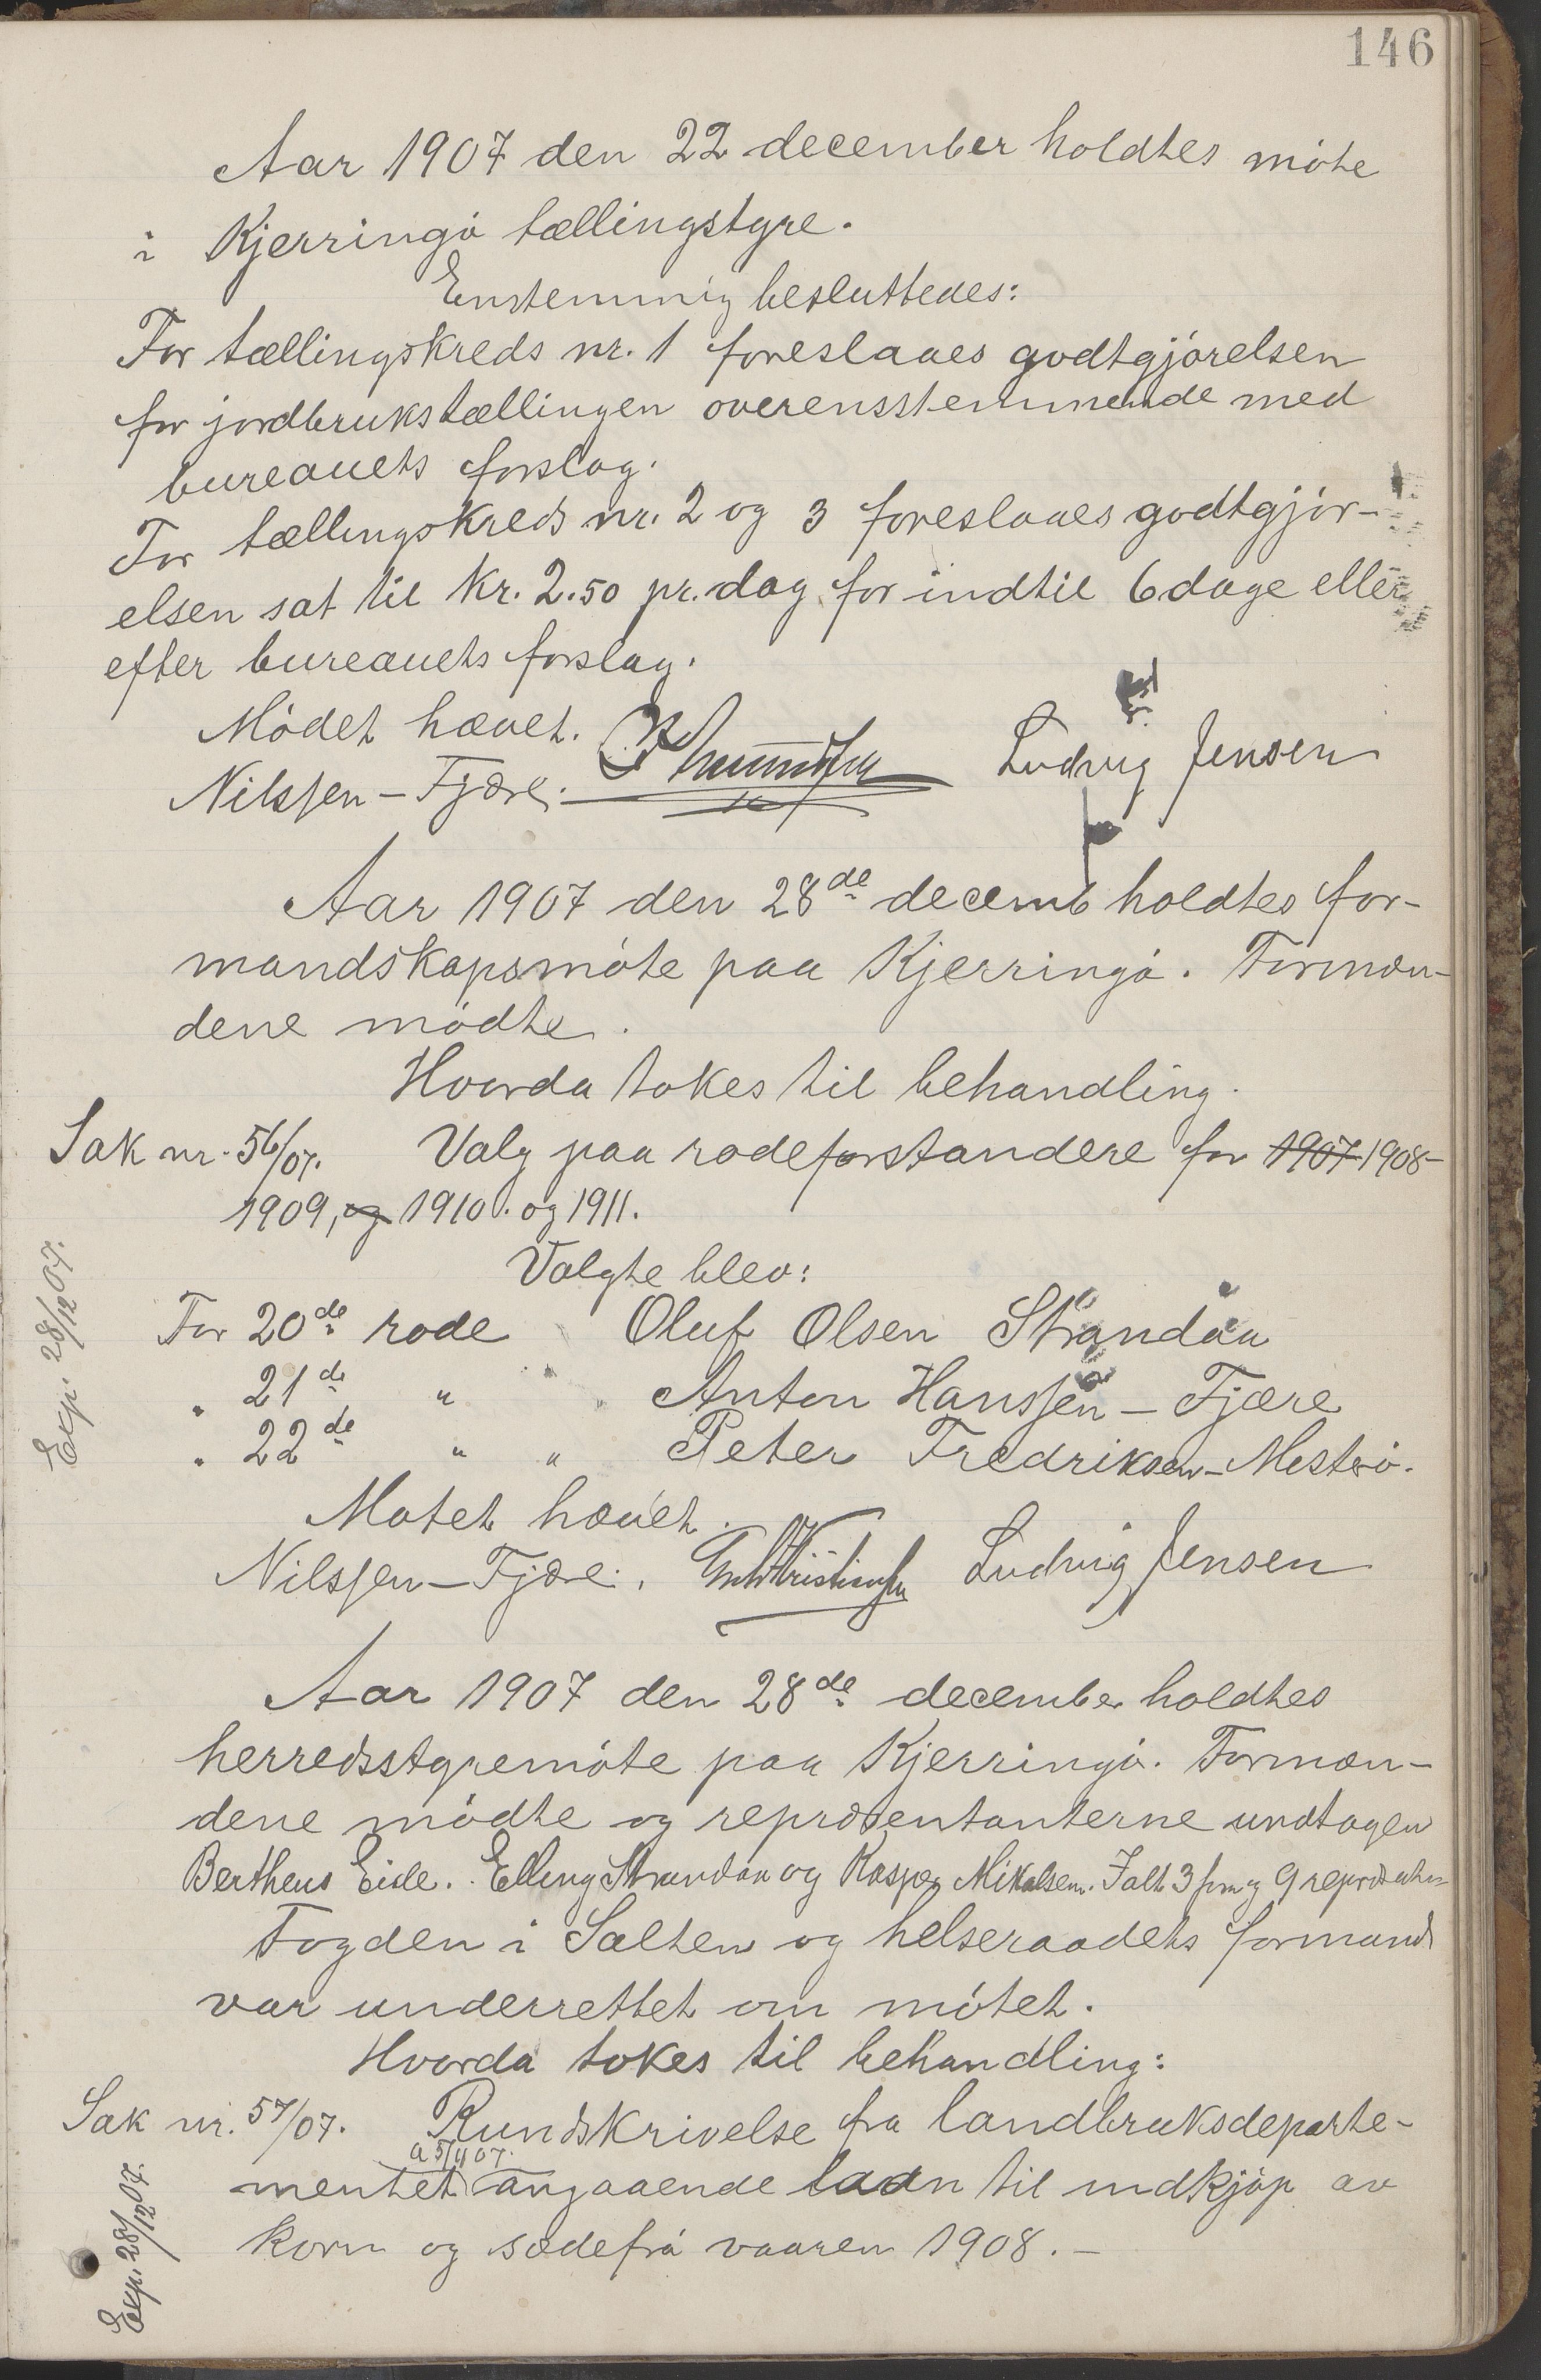 146
Aar 1907 den 22 december holdtes möte
i Kjerringö tællingstyre.
Enstemmig besluttedes:
For tællingskreds nr. 1 foreslaaes godtgjörelsen
for jordbrukstællingen overensstemmende med
bureauets forslag.
For tællingskreds nr. 2 og 3 foreslaaes godtgjör-
elsen sat til kr. 2.50 pr. dag for indtil 6 dage eller
efter bureauets forslag.
Mödet hævet. Ludvig Jensen
Nilssen-Fjære.
Aar 1907 den 28de decemb holdtes for-
mandskapsmöte paa Kjerringö. Formæn-
dene mödte.
Hvorda tokes til behandling.
Sak nr. 56/07. Valg paa rodeforstandere for 1907 1908-
1909, og 1910. og 1911.
Valgte blev:
Exp. 28/12 07.
For 20de rode Oluf Olsen Strandaa
" 21de " " Anton Hanssen - Fjære
" 22de " " Peter Fredriksen - Meströ.
Motet hævet.
Nilssen-Fjære. Ludvig Jensen
Aar 1907 den 28de december holdtes
herredsstyremöte paa Kjerringö. Formæn-
dene mödte og repræsentanterne undtagen
Bertheus Eide. Elling Strandaa og Kasper Mikalsen. Ialt 3 form og 9 repræsentan
Fogden i Salten og helseraadets formand
var underrettet om mötet.
Hvorda tokes til behandling:
Sak nr. 57/07. Rundskrivelse fra landbruksdeparte-
a 5/11 07.
mentet angaaende laan til indkjöp av
korn og sædefrö vaaren 1908.-
Exp. 28/12 07.